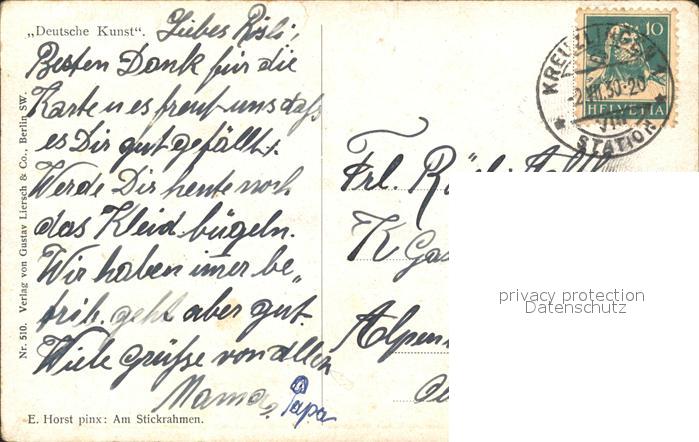 „Deutsche Kunst“.
Liebes Rösli,
Besten Dank für die
Karten es freut uns daß
es Dir gut gefällt.
Werde Dir heute noch
das Kleid bügeln.
Wir haben immer be„
trib. geht aber gut.
Viele grüße von allen
Mama, Papa
E. Horst pinx: Am Stickrahmen.
Nr. 510. Verlag von Gustav Liersch & Co., Berlin SW.
10
HELVETIA
KREUZLINGEN 1
30-20
VIII
STATION
Frl. Rösli
K
Alpen
privacy protection
Datenschutz